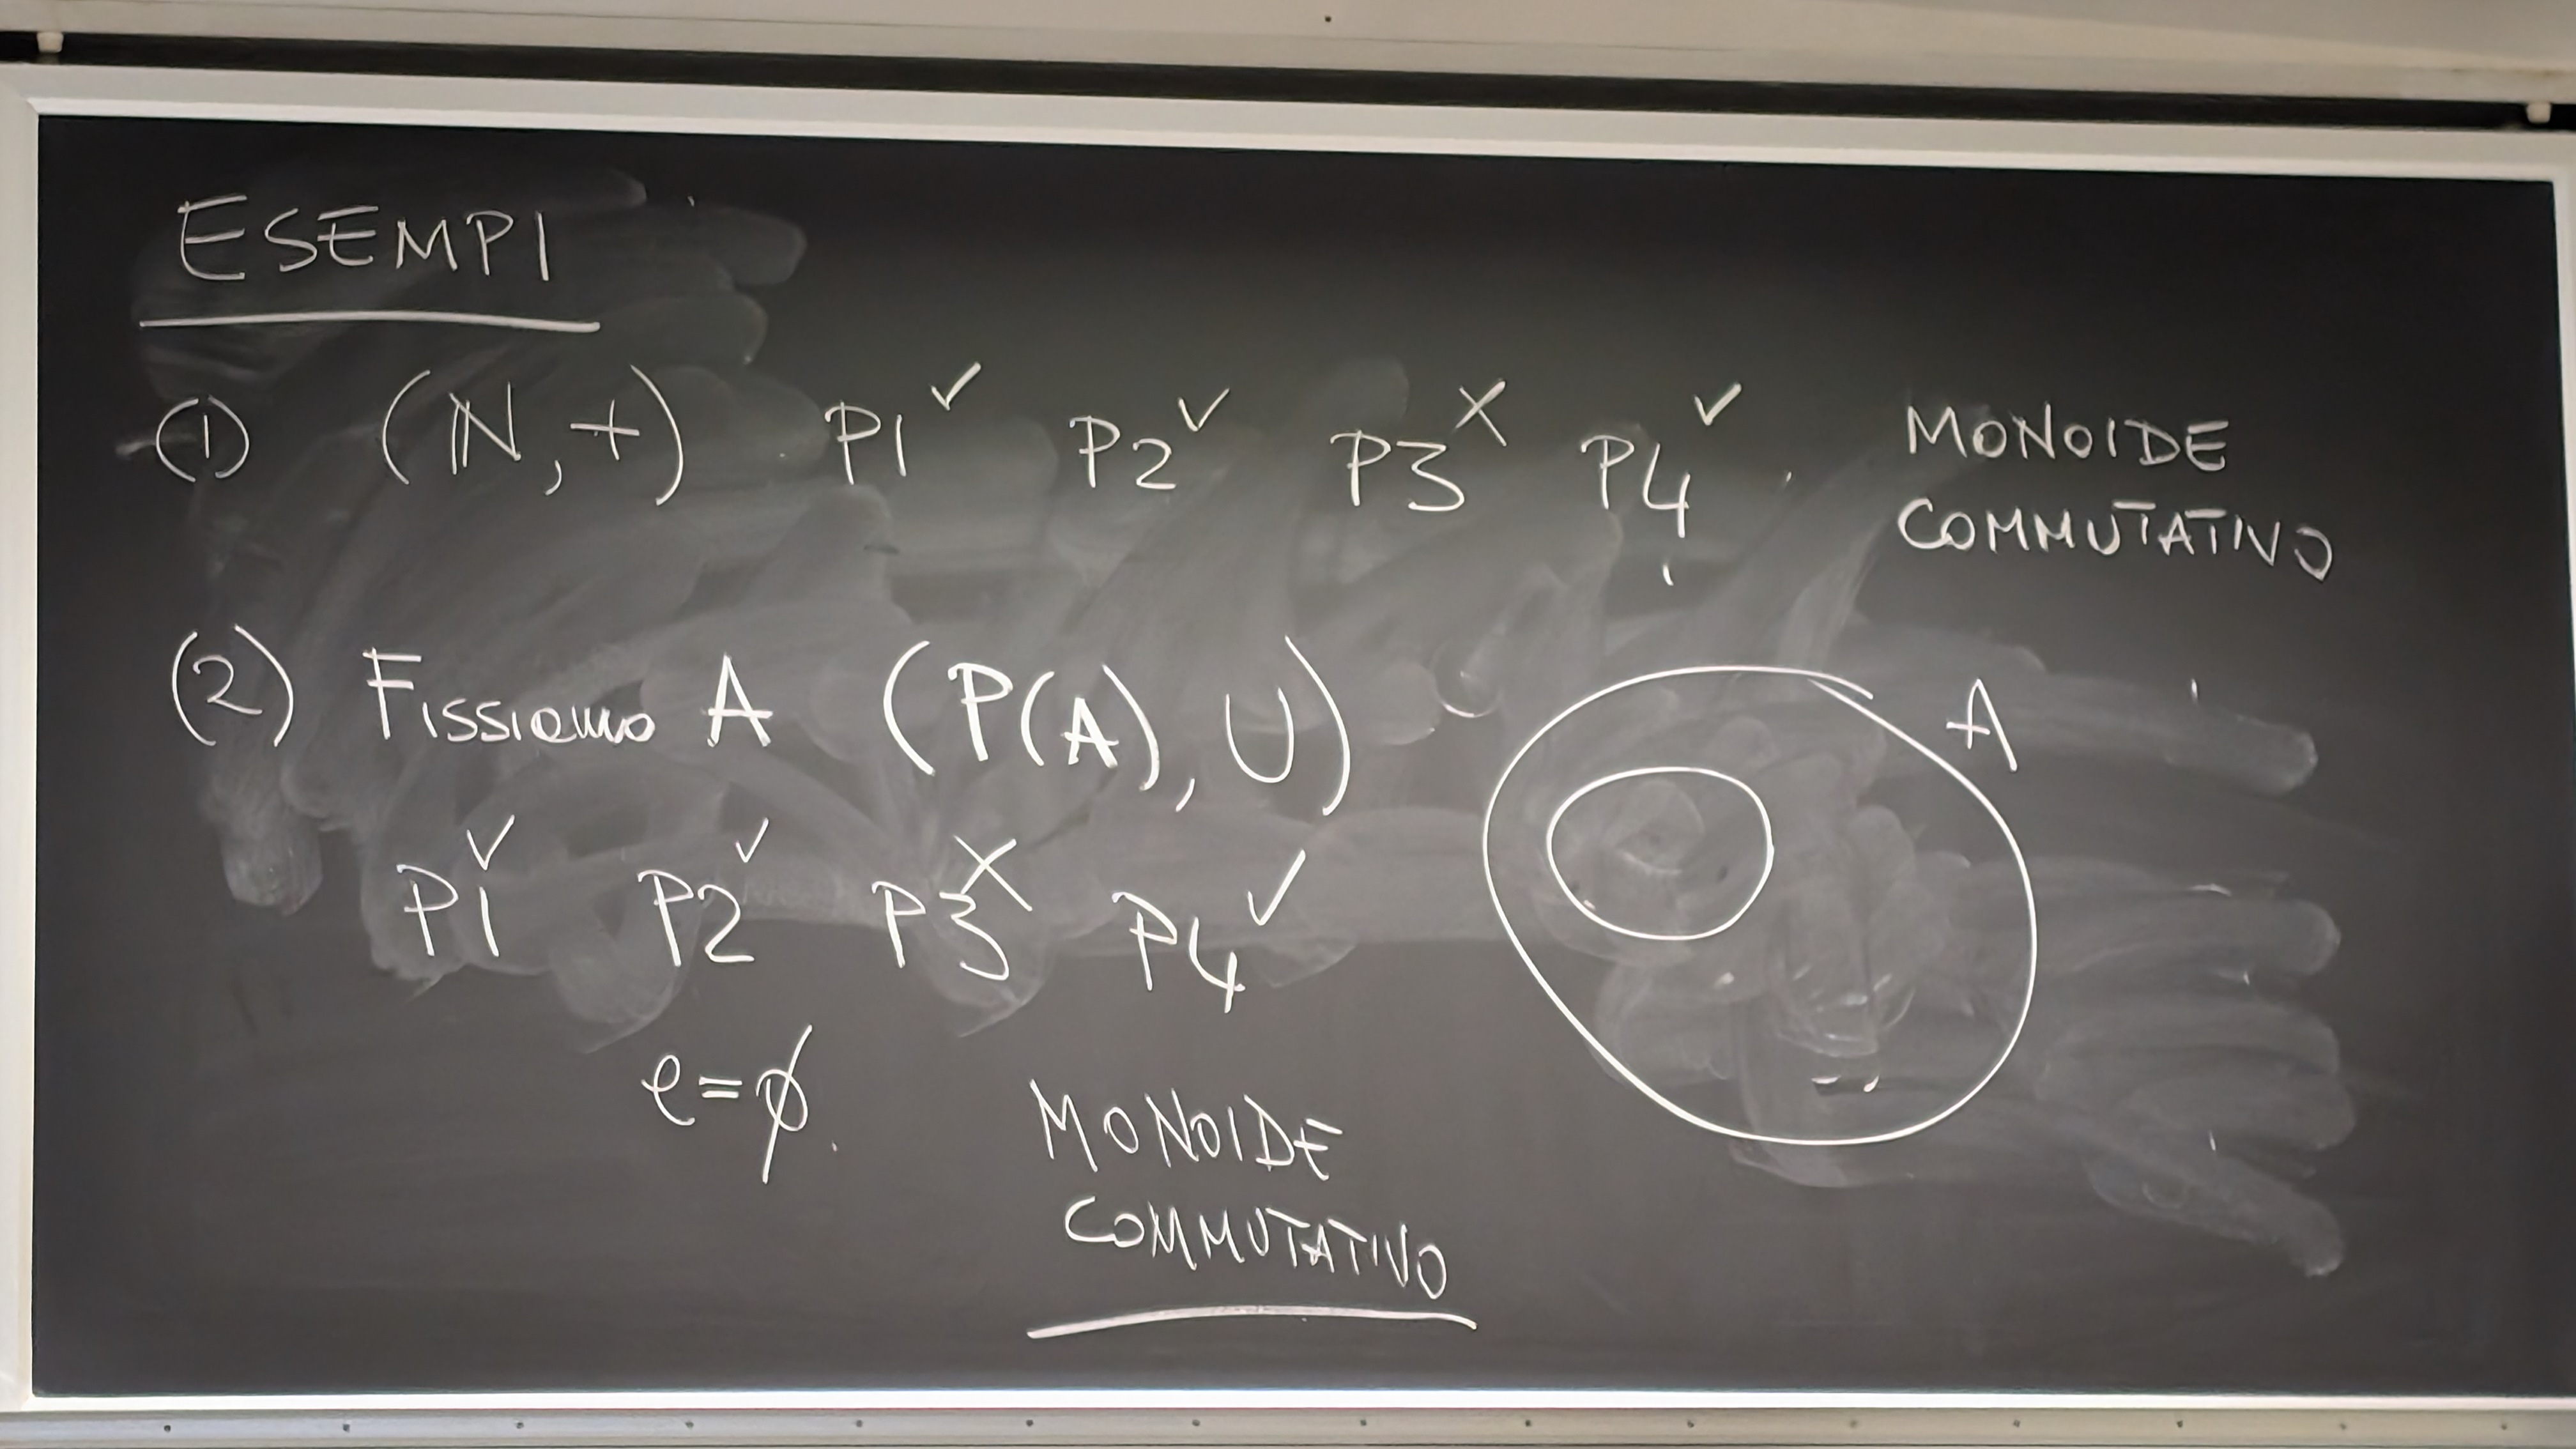 ESEMPI
(1) (ℕ, +) P1 ✓ P2 ✓ P3 X P4 ✓ MONOIDE
COMMUTATIVO
(2) Fissiamo A (P(A), ∪) A
P1 ✓ P2 ✓ P3 X P4 ✓
e = ∅.
MONOIDE
COMMUTATIVO